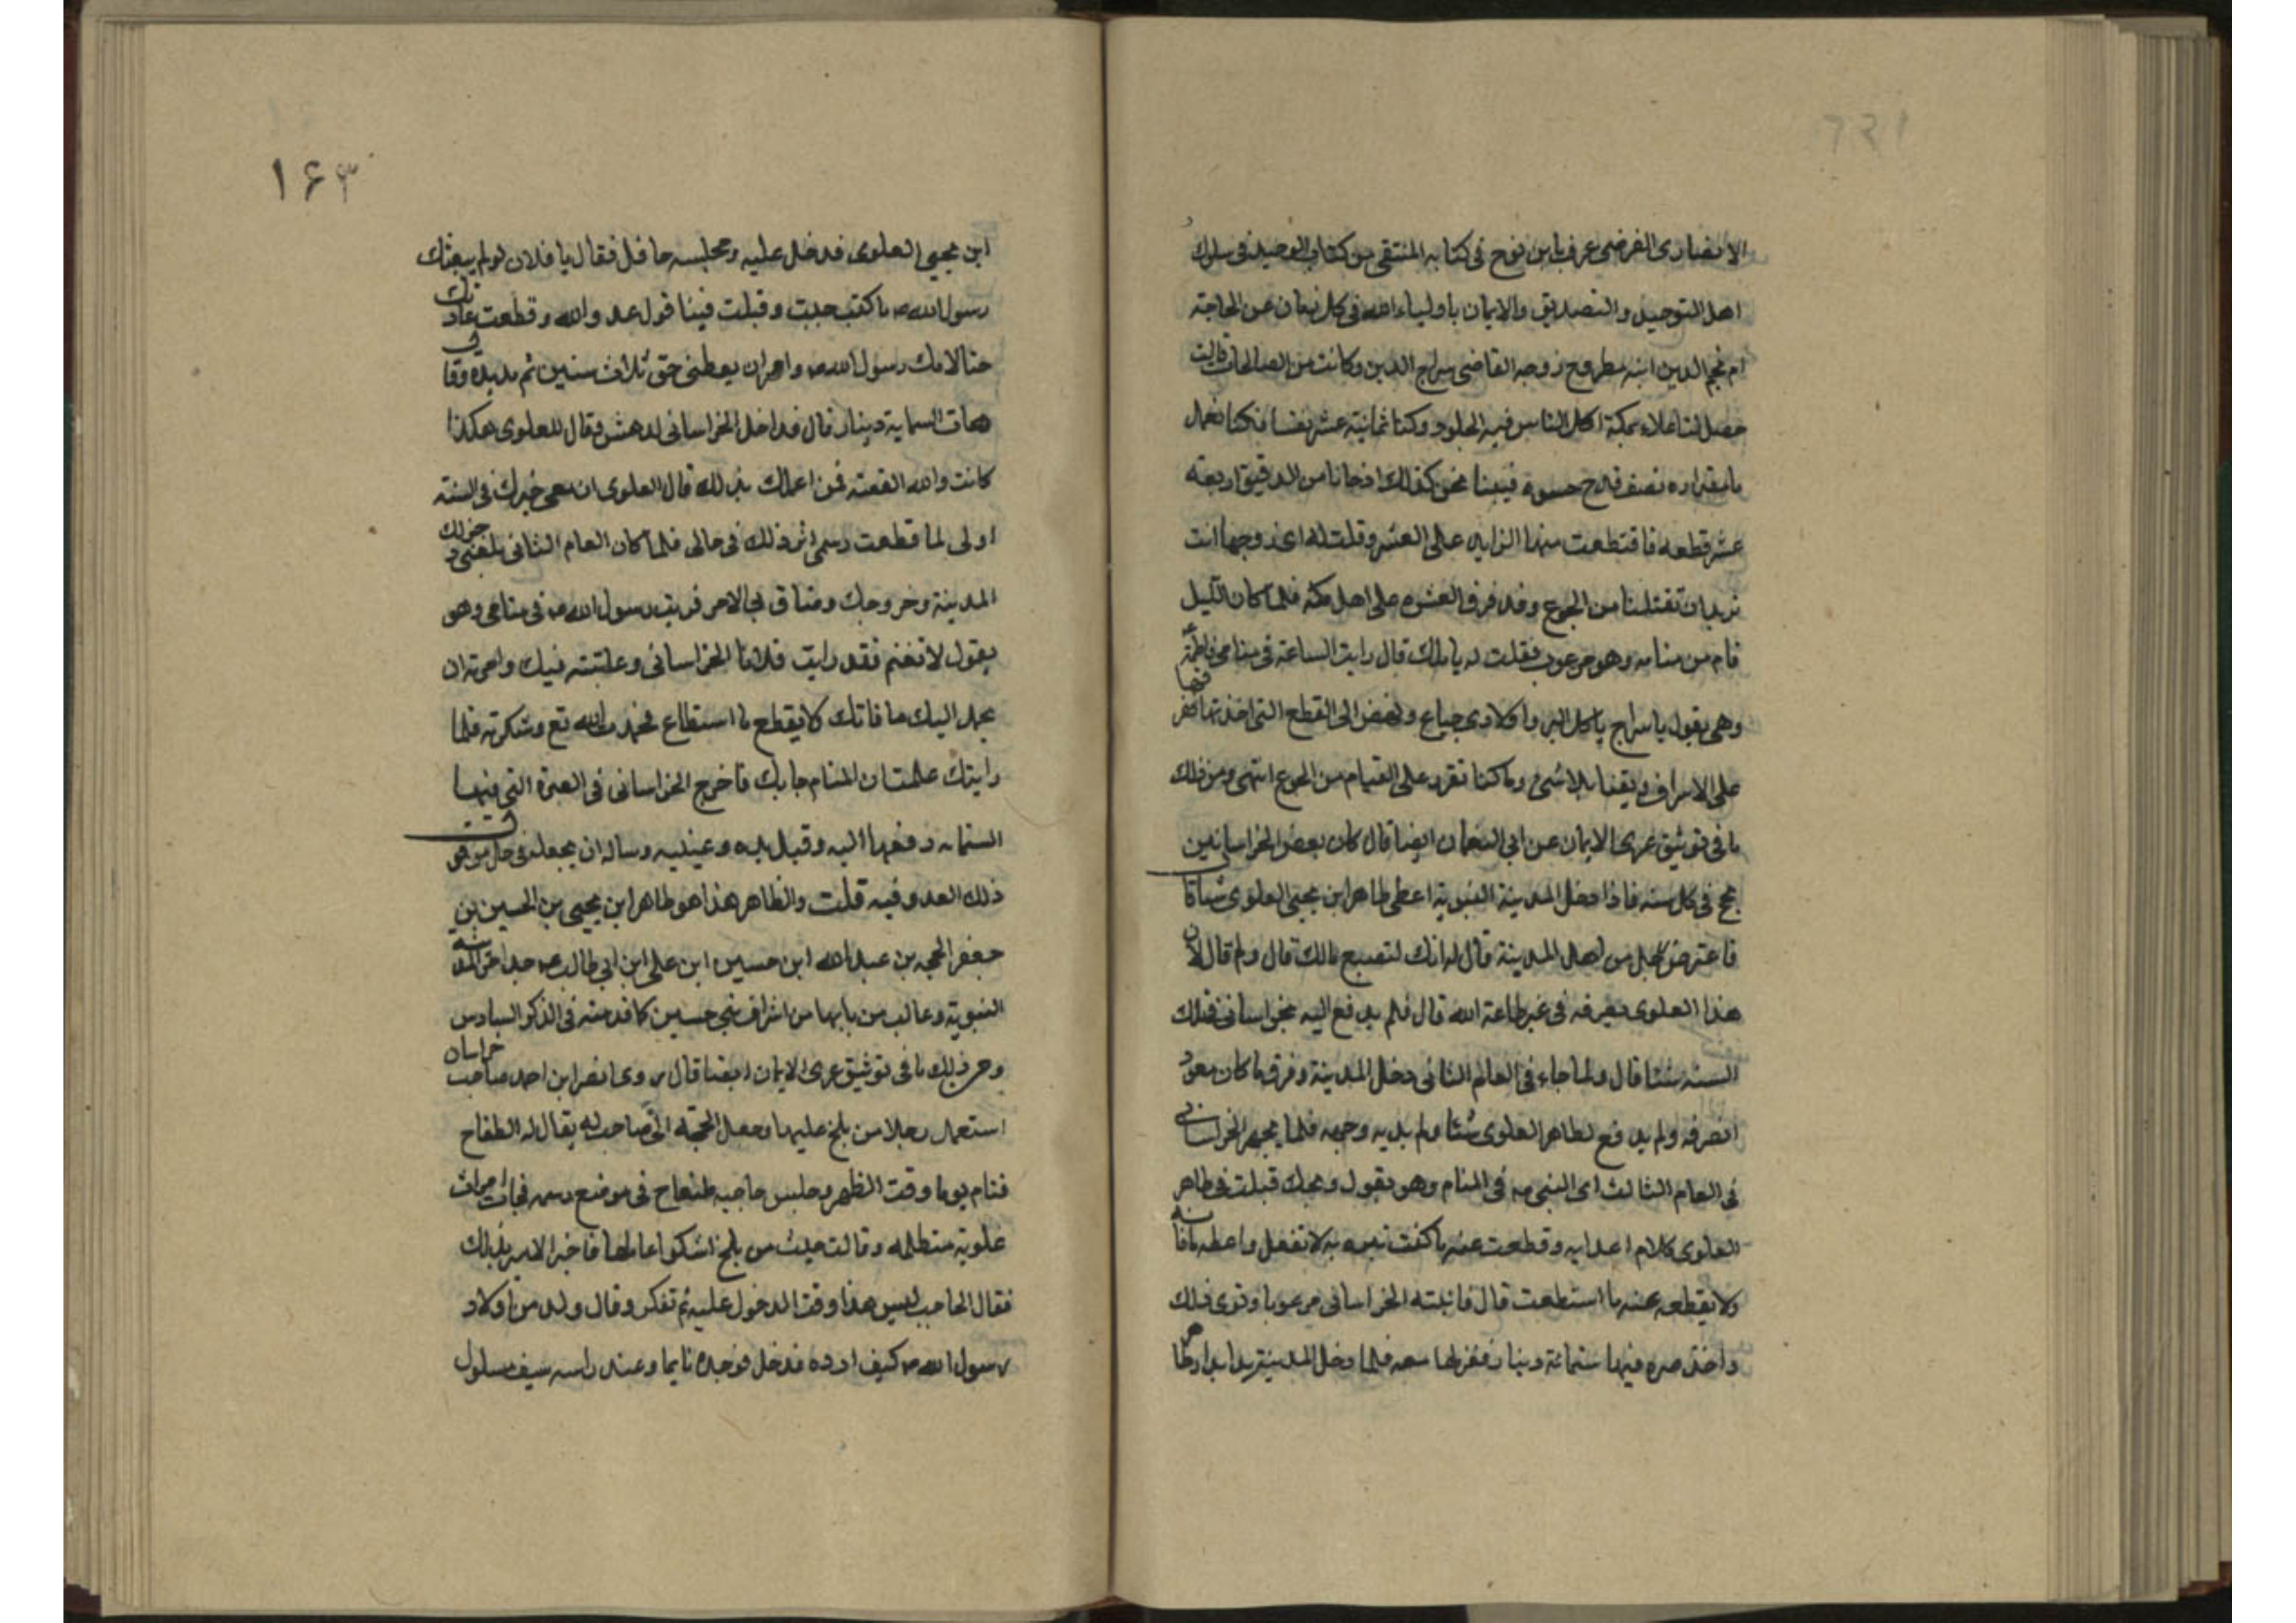 الانصارى الفرضى عرف بابن نوح فى كتابه المنتقى من كتاب الوحيد فى سلوك
اهل التوحيد والتصديق والايمان باولياء الله فى كل زمان عن الحاجة
ام نجم الدين ابنه مطروح زوجه القاضى سراج الدين وكانت من الصالحات قالت
حصل لنا غلاء بمكة اكل الناس فيه الجلود وكنا ثمانية عشر نفسا فكنا نعمل
ما مقداره نصف قدح حسوة فبينا نحن كذلك اذ جانا من الدقيق اربعة
عشر قطعه فاقتطعت منها الزايد على العشر وقلت له اى زوجها انت
تريد ان تقتلنا من الجوع وقد فرق العشره على اهل مكه فلما كان الليل
قام من منامه وهو مرعوب فقلت له يا مالك قال رايت الساعة فى منامى فاطمة
وهى يقول يا سراج ياكل البر واولادى جياع ونهض الى القطع التى اخذتها ففرقها
على الاشراف وبقينا بلا شئ وما كنا نقدر على القيام من الجوع انتهى ومن ذلك
ما فى توثيق عرى الايمان عن ابى النعمان ايضا قال كان بعض الخراسانيين
يحج فى كل سنه فاذا دخل المدينة النبوية اعطى طاهر ابن يحيى العلوى شيئا قال
فاعترض رجل من اهل المدينة قال له انك لتضيع مالك قال ولم قال لان
هذا العلوى يصرفه فى غير طاعة الله قال فلم يدفع اليه الخراسانى فى تلك
السنه شيئا قال ولما جاء فى العالم الثانى دخل المدينة وفرق ما كان معود
الصرفه ولم يدفع لطاهر العلوى شيئا ولم يديه وجهه فلما تجهز الخراسانى
فى العام الثالث اى النبى ص فى المنام وهو يقول ويحك قبلت فى طاهر
العلوى كلام اعدايه وقطعت عنه ما كنت تبره به لا تفعل واعطه ما فاته
ولا يقطعه عنه ما استطعت قال فانتبه الخراسانى مرعوبا ونوى ذلك
واخذ صره فيها ستمائة دينار فعزلها معه فلما دخل المدينة بدا بدار طاهر
١۶٣
ابن يحيى العلوى فدخل عليه ومجلسه حافل فقال يا فلان لو لم يبعثك
رسول الله ص ما كنت جيت وقبلت فينا قول عدو الله وقطعت عادتك
حتى لامك رسول الله ص وامر ان يعطنى حق ثلاث سنين ثم مد يده وقال
هات الستماية دينار قال فداخل الخراسانى الدهش فقال للعلوى هكذا
كانت والله القصة فمن اعلمك بذلك قال العلوى ان معى خبرك فى السنة
اولى لما قطعت رسمى اثر ذلك فى حالى فلما كان العام الثانى بلغنى دخولك
المدينة وخروجك وضاق بى الامر فرايت رسول الله ص فى منامى وهو
يقول لا تغتم فقد رايت فلانا الخراسانى وعاتبته فيك وامرته ان
يحمل اليك ما فاتك ولا يقطع ما استطاع فحمدت الله تع وشكرته فلما
رايتك علمت ان المنام جا بك فاخرج الخراسانى فى الصرة التى فيها
الستمايه دفعها اليه وقبل يده وعينيه وساله ان يجعله فى حل من قبول
ذلك العدو فيه قلت والظاهر هذا هو طاهر ابن يحيى بن الحسين بن
جعفر الحجه بن عبد الله ابن حسين ابن على ابن ابى طالب ع جد امراء المدينه
النبوية وغالب من بابها من اشراف بنى حسين كما قدمته فى الذكر السادس
ومن ذلك ما فى توثيق عرى الايمان ايضا قال روى ان نصر ابن احمد صاحب خراسان
استعمل رجلا من بلخ عليها وجعل الحجبة الى صاحب له يقال له الطغاج
فنام يوما وقت الظهر وجلس حاجبه طغاج فى موضع رسمه فجائت امراة
علوية متظلمه وقالت جيت من بلخ اشكو عاملها فاخبر الامير بذلك
فقال الحاجب ليس هذا وقت الدخول عليه ثم تفكر وقال ولد من اولاد
رسول الله ص كيف ارده فدخل فوجده نايما وعند راسه سيف مسلول